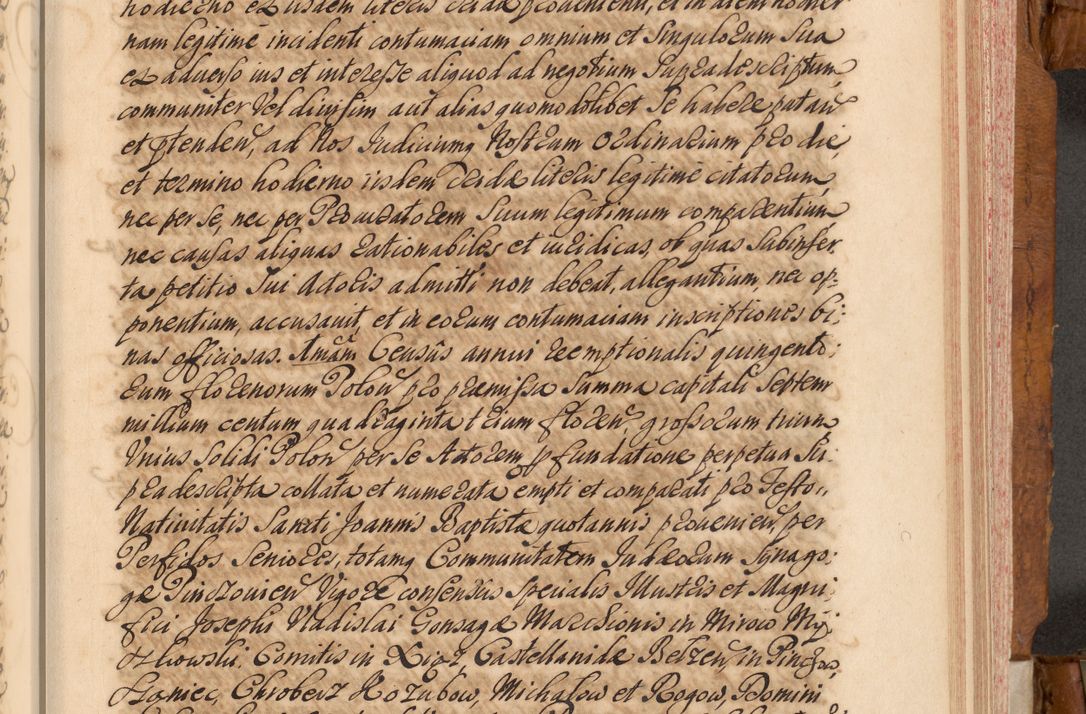 hodierno ex eisdem literis
nam legitimé incidenti contumaciam omnium et Singulorum Sua
ex adverso ius et interesse aliquod ad negotium Supradescriptum
communiter Vel divisim aut alias quomodolibet Se habere putan
et ptenden, ad Nos Judiciumq Nostrum Ordinarium pro die,
et termino hodierno iisdem literis legitimé citatorum,
nec per Se, nec per Procuratorem Suum legitimum comparentium
nec causas aliquas rationabiles et iuridicas, ob quas Subinser
ta petitio Sui Actoris admitti non debeat, allegantium, nec op=
ponentium, accusavit, et in eorum contumaciam inscriptiones bi:
nas officiosas. Census annui reemptionalis quingento:
rum florenorum Polon pro praemissa Summa capitali Septem
millium centum quadraginta trium floren, grossorum trium
Unius Solidi Polon per Se Actorem p fundatione perpetua Su:
pradescripta collata et numerata empti et comparati pro Festo,,
Nativitatis Sancti Joannis Baptistae quotannis provenien, per
Perfidos Seniores, totamq Communitatem Judaeorum Synago:
gae Pinczovien Vigore consensus Specialis Illustris et Magni:
fici Josephi Vladislai Gonsaga Marchionis in Mirow Mÿ:
szkowski. Comitis in Xiąż, Castellanidae Belzen in Pinczow,
Szaniec, Chroberz Kozubow, Michalow et Rogow, Domini